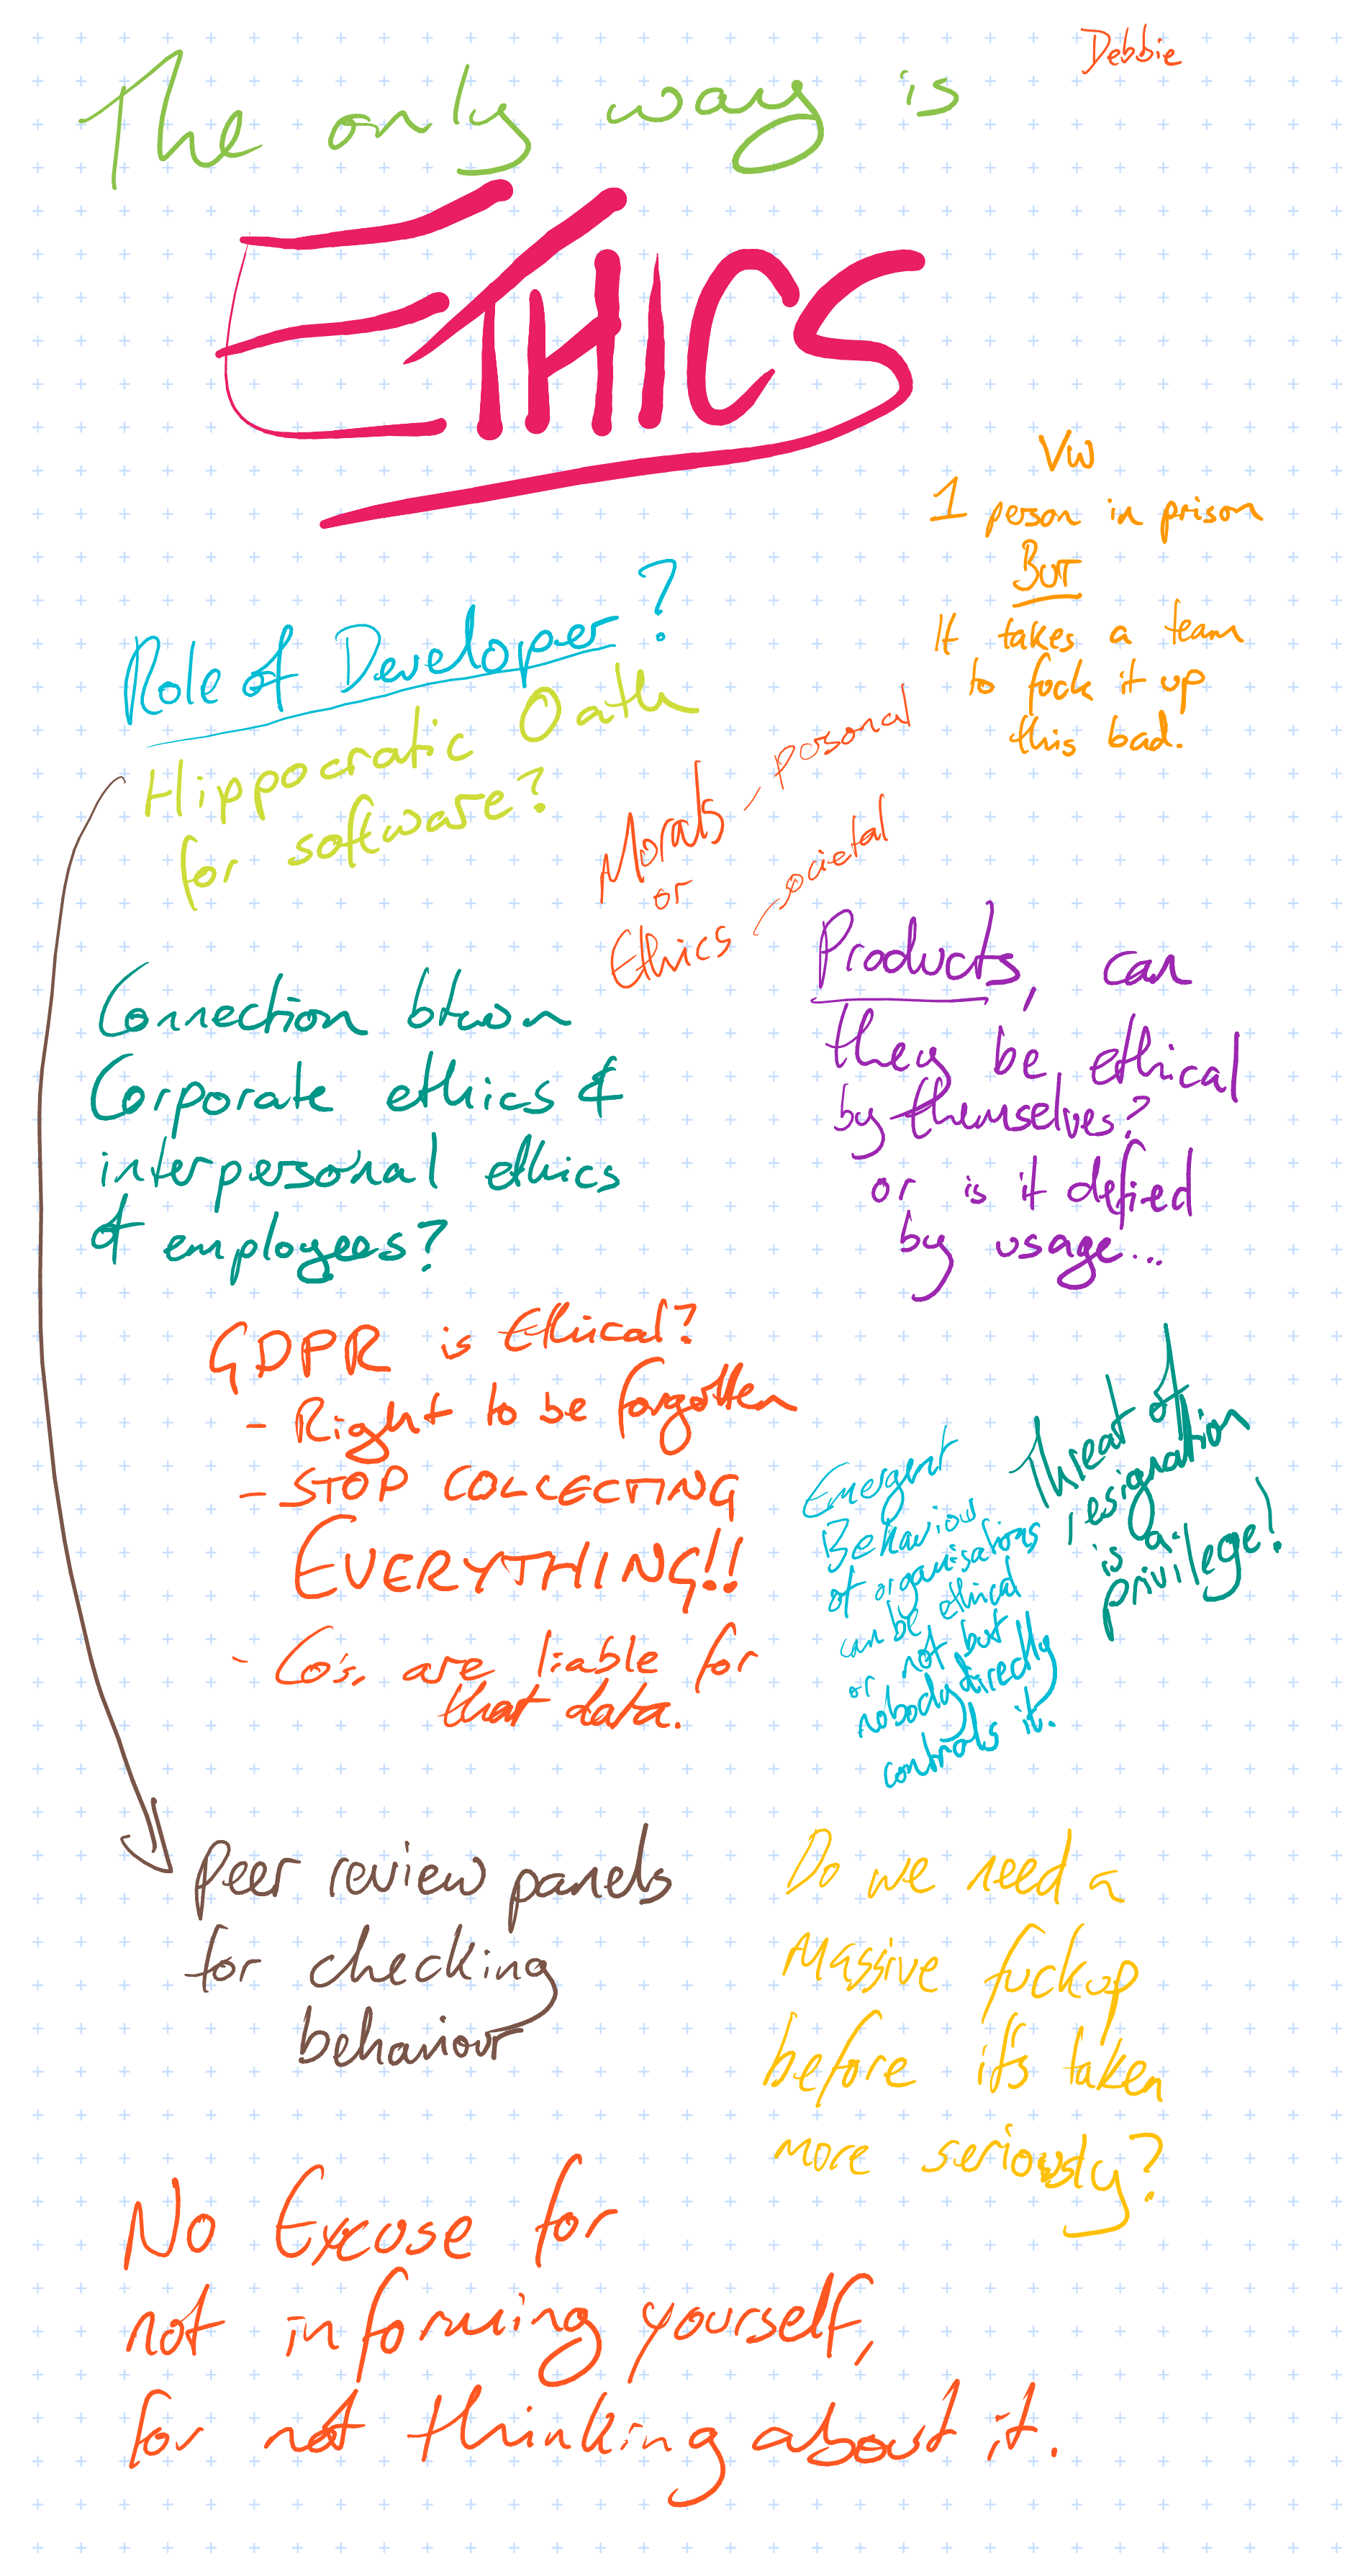 Debbie
The only way is
ETHICS
VW
1 person in prison
BUT
It takes a team
to fuck it up
this bad.
Role of Developer?
Hippocratic Oath
for software?
Morals - personal
or
Ethics - societal
Connection btwen
Corporate ethics &
interpersonal ethics
of employees?
Products, can
they be ethical
by themselves?
or is it defied
by usage...
GDPR is Ethical?
- Right to be forgotten
- STOP COLLECTING
EVERYTHING!!
- Co's, are liable for
that data.
Emergent
Behaviour
of organisations
can be ethical
or not but
nobody directly
controls it.
Threat of
resignation
is a
privilege!
Peer review panels
for checking
behaviour
Do we need a
Massive fuckup
before it's taken
more seriously?
No Excuse for
not informing yourself,
for not thinking about it.